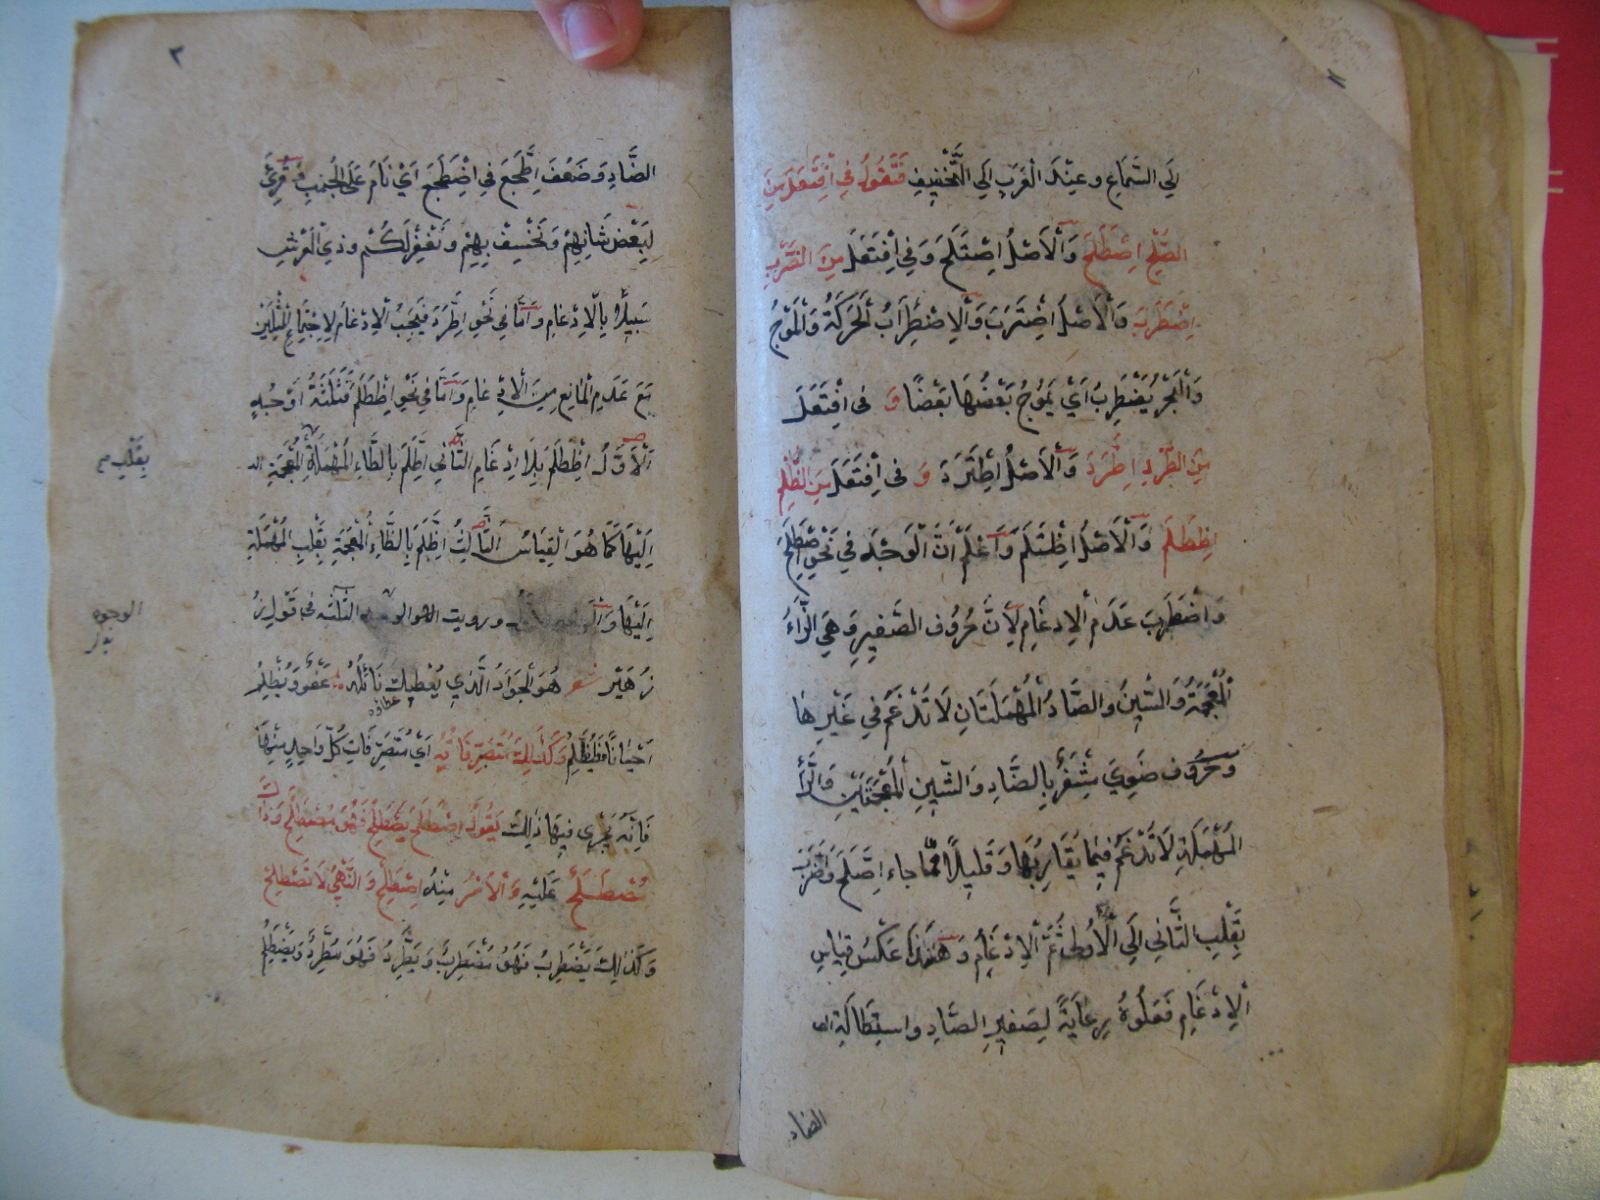 الى السماع وعند العرب الى التخفيف فتقول فى افتعل من
الصلح اصطلح والاصل اصتلح وفى افتعل من الضرب
اضطرب والاصل اضترب والاضطراب الحركة والموج
والبحر يضطرب اى يموج بعضها بعضا و فى افتعل
من الطرد اطرد والاصل اطترد و فى افتعل من الظلم
اظطلم والاصل اظتلم واعلم ان الوجه في نحو اصطلح
واضطرب عدم الادغام لان حروف الصفير وهي الزاء
المعجمة والسين والصاد المهملتان لا تدغم في غيرها
وحروف ضوى مشفر بالضاد والشين المعجمتين والراء
المهملة لا تدغم فيما يقاربها وقليلا مما جاء اصلح واضرب
بقلب الثاني الى الاولى ثم الادغام وهذا عكس قياس
الادغام فعلوه رعاية لصفير الصاد واستطالة
الضاد
٢
الضاد وضعف اطجع في اضطجع اي نام على الجنب وقرئ
لبعض شانهم ونخسف بهم ونغفر لكم وذي العرش
سبيلا بالادغام واما في نحو اطرد فيجب الادغام لاجتماع المثلين
مع عدم المانع من الادغام واما في نحو اظطلم فثلثة اوجه
الاول اظطلم بلا ادغام الثاني اطلم بالطاء المهملة المعجمة
اليها كما هو القياس الثالث اظلم بالظاء المعجمة بقلب المهملة
اليها ورويت الثلثه في قول
زهير شعر هو الجواد الذي يعطيك نائله عفو ويظلم
عطاؤه
احيانا فيظطلم وكذلك متصرفاته اي متصرفات كل واحد منها
فانه يجرى فيها ذلك يقول اصطلح يصطلح فهو مصطلح وذاك
مصطلح عليه والامر منه اصطلح والنهي لا تصطلح
وكذلك يضطرب فهو مضطرب ويطرد فهو مطرد ويظطلم
بقلب
الوجوه